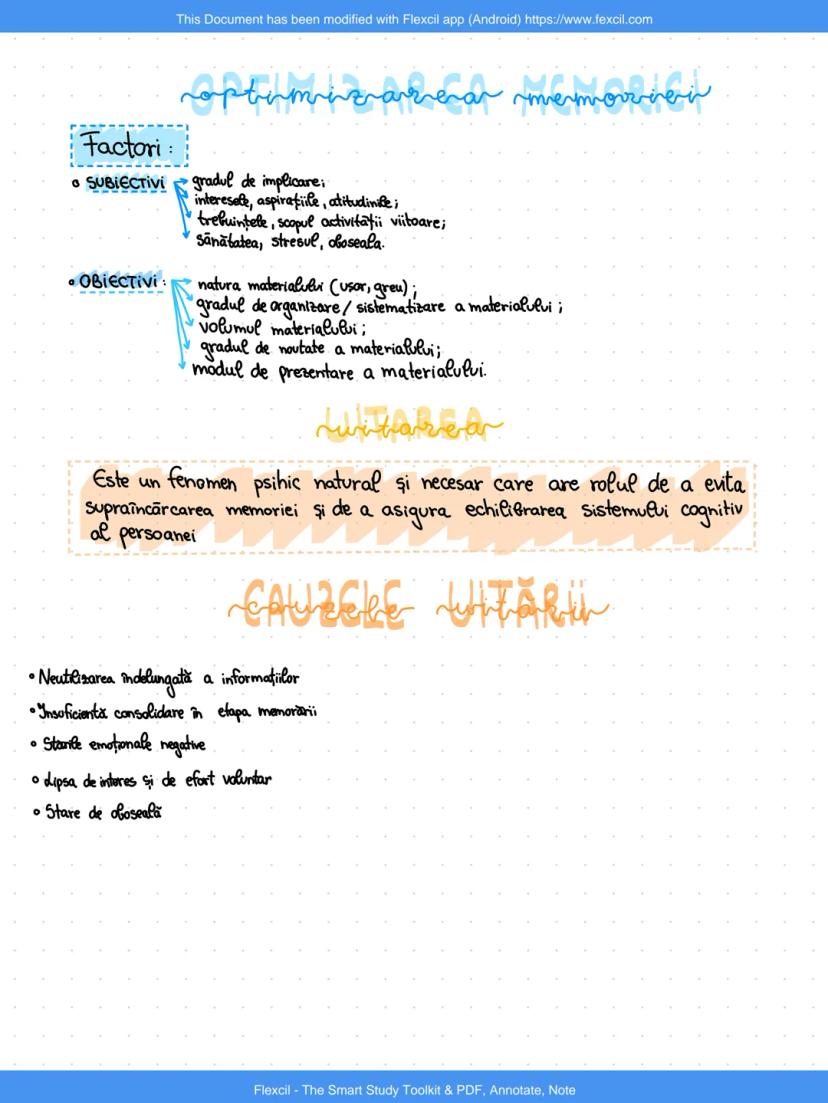 This Document has been modified with Flexcil app (Android) https://www.fexcil.com
OPTIMIZAREA MEMORIEI
optimizarea memoriei
Factori:
• SUBIECTIVI
gradul de implicare;
interesele, aspirațiile, atitudinile;
trebuințele, scopul activității viitoare;
sănătatea, stresul, oboseala.
• OBIECTIVI:
natura materialului (ușor, greu);
gradul de organizare/ sistematizare a materialului;
volumul materialului;
gradul de noutate a materialului;
modul de prezentare a materialului.
UITAREA
uitarea
Este un fenomen psihic natural și necesar care are rolul de a evita
supraîncărcarea memoriei și de a asigura echilibrarea sistemului cognitiv
al persoanei
CAUZELE UITĂRII
cauzele uitării
• Neutilizarea îndelungată a informațiilor
• Insuficientă consolidare în etapa memorării
• Stările emoționale negative
• Lipsa de interes și de efort voluntar
• Stare de oboseală
Flexcil - The Smart Study Toolkit & PDF, Annotate, Note